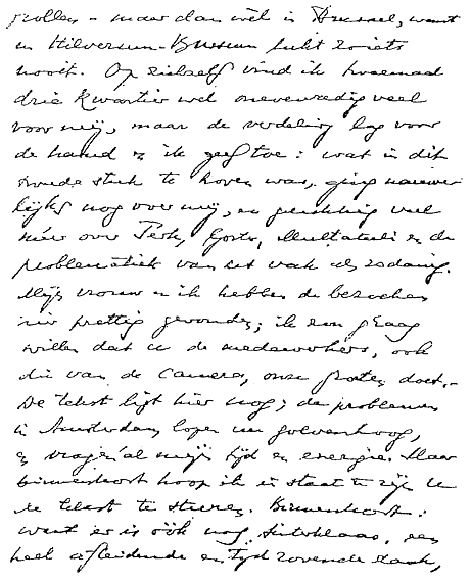 rollen - maar dan wèl in Brussel, want
in Hilversum-Bussum lukt zoiets
nooit. Op zichzelf vind ik tweemaal
drie kwartier wel onevenredig veel
voor mij, maar de verdeling lag voor
de hand en ik geef toe: wat in dit
tweede stuk te horen was, ging nauwe-
lijks nog over mij, en gelukkig veel
méér over Perk, Gorter, Multatuli en de
problematiek van het vak als zodanig.
Mijn vrouw en ik hebben de bezoeken
zeer prettig gevonden; ik zou graag
willen dat u de medewerkers, ook
die van de camera, onze groeten doet.-
De tekst ligt hier nog; de problemen
in Amsterdam lopen me golvenhoog,
en vragen al mijn tijd en energie. Maar
binnenkort hoop ik in staat te zijn u
de tekst te sturen. Binnenkort:
want er is óók nog Sinterklaas, een
heel afleidende en tijd rovende zaak,